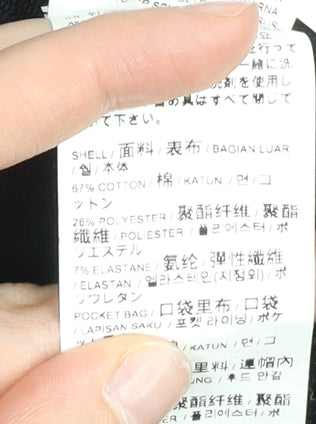 を行って
一緒に洗
洗剤を使用し
の具はすべて閉じて
いて下さい。
SHELL / 面料 / 表布 / BAGIAN LUAR
/ 쉘 / 本体
67% COTTON / 棉 / KATUN / 면 / コ
ットン
26% POLYESTER / 聚酯纤维 / 聚酯
纖維 / POLIESTER / 폴리에스터 / ポ
リエステル
7% ELASTANE / 氨纶 / 彈性纖維
/ ELASTAN / 엘라스테인(지정외) / ポ
リウレタン
POCKET BAG / 口袋里布 / 口袋
/ LAPISAN SAKU / 포켓 라이닝 / ポケ
/ KATUN / 면 / コ
里料 / 連帽內
UNG / 후드 안감
聚酯纤维 / 聚酯
ER / 폴리에스터 / ポ